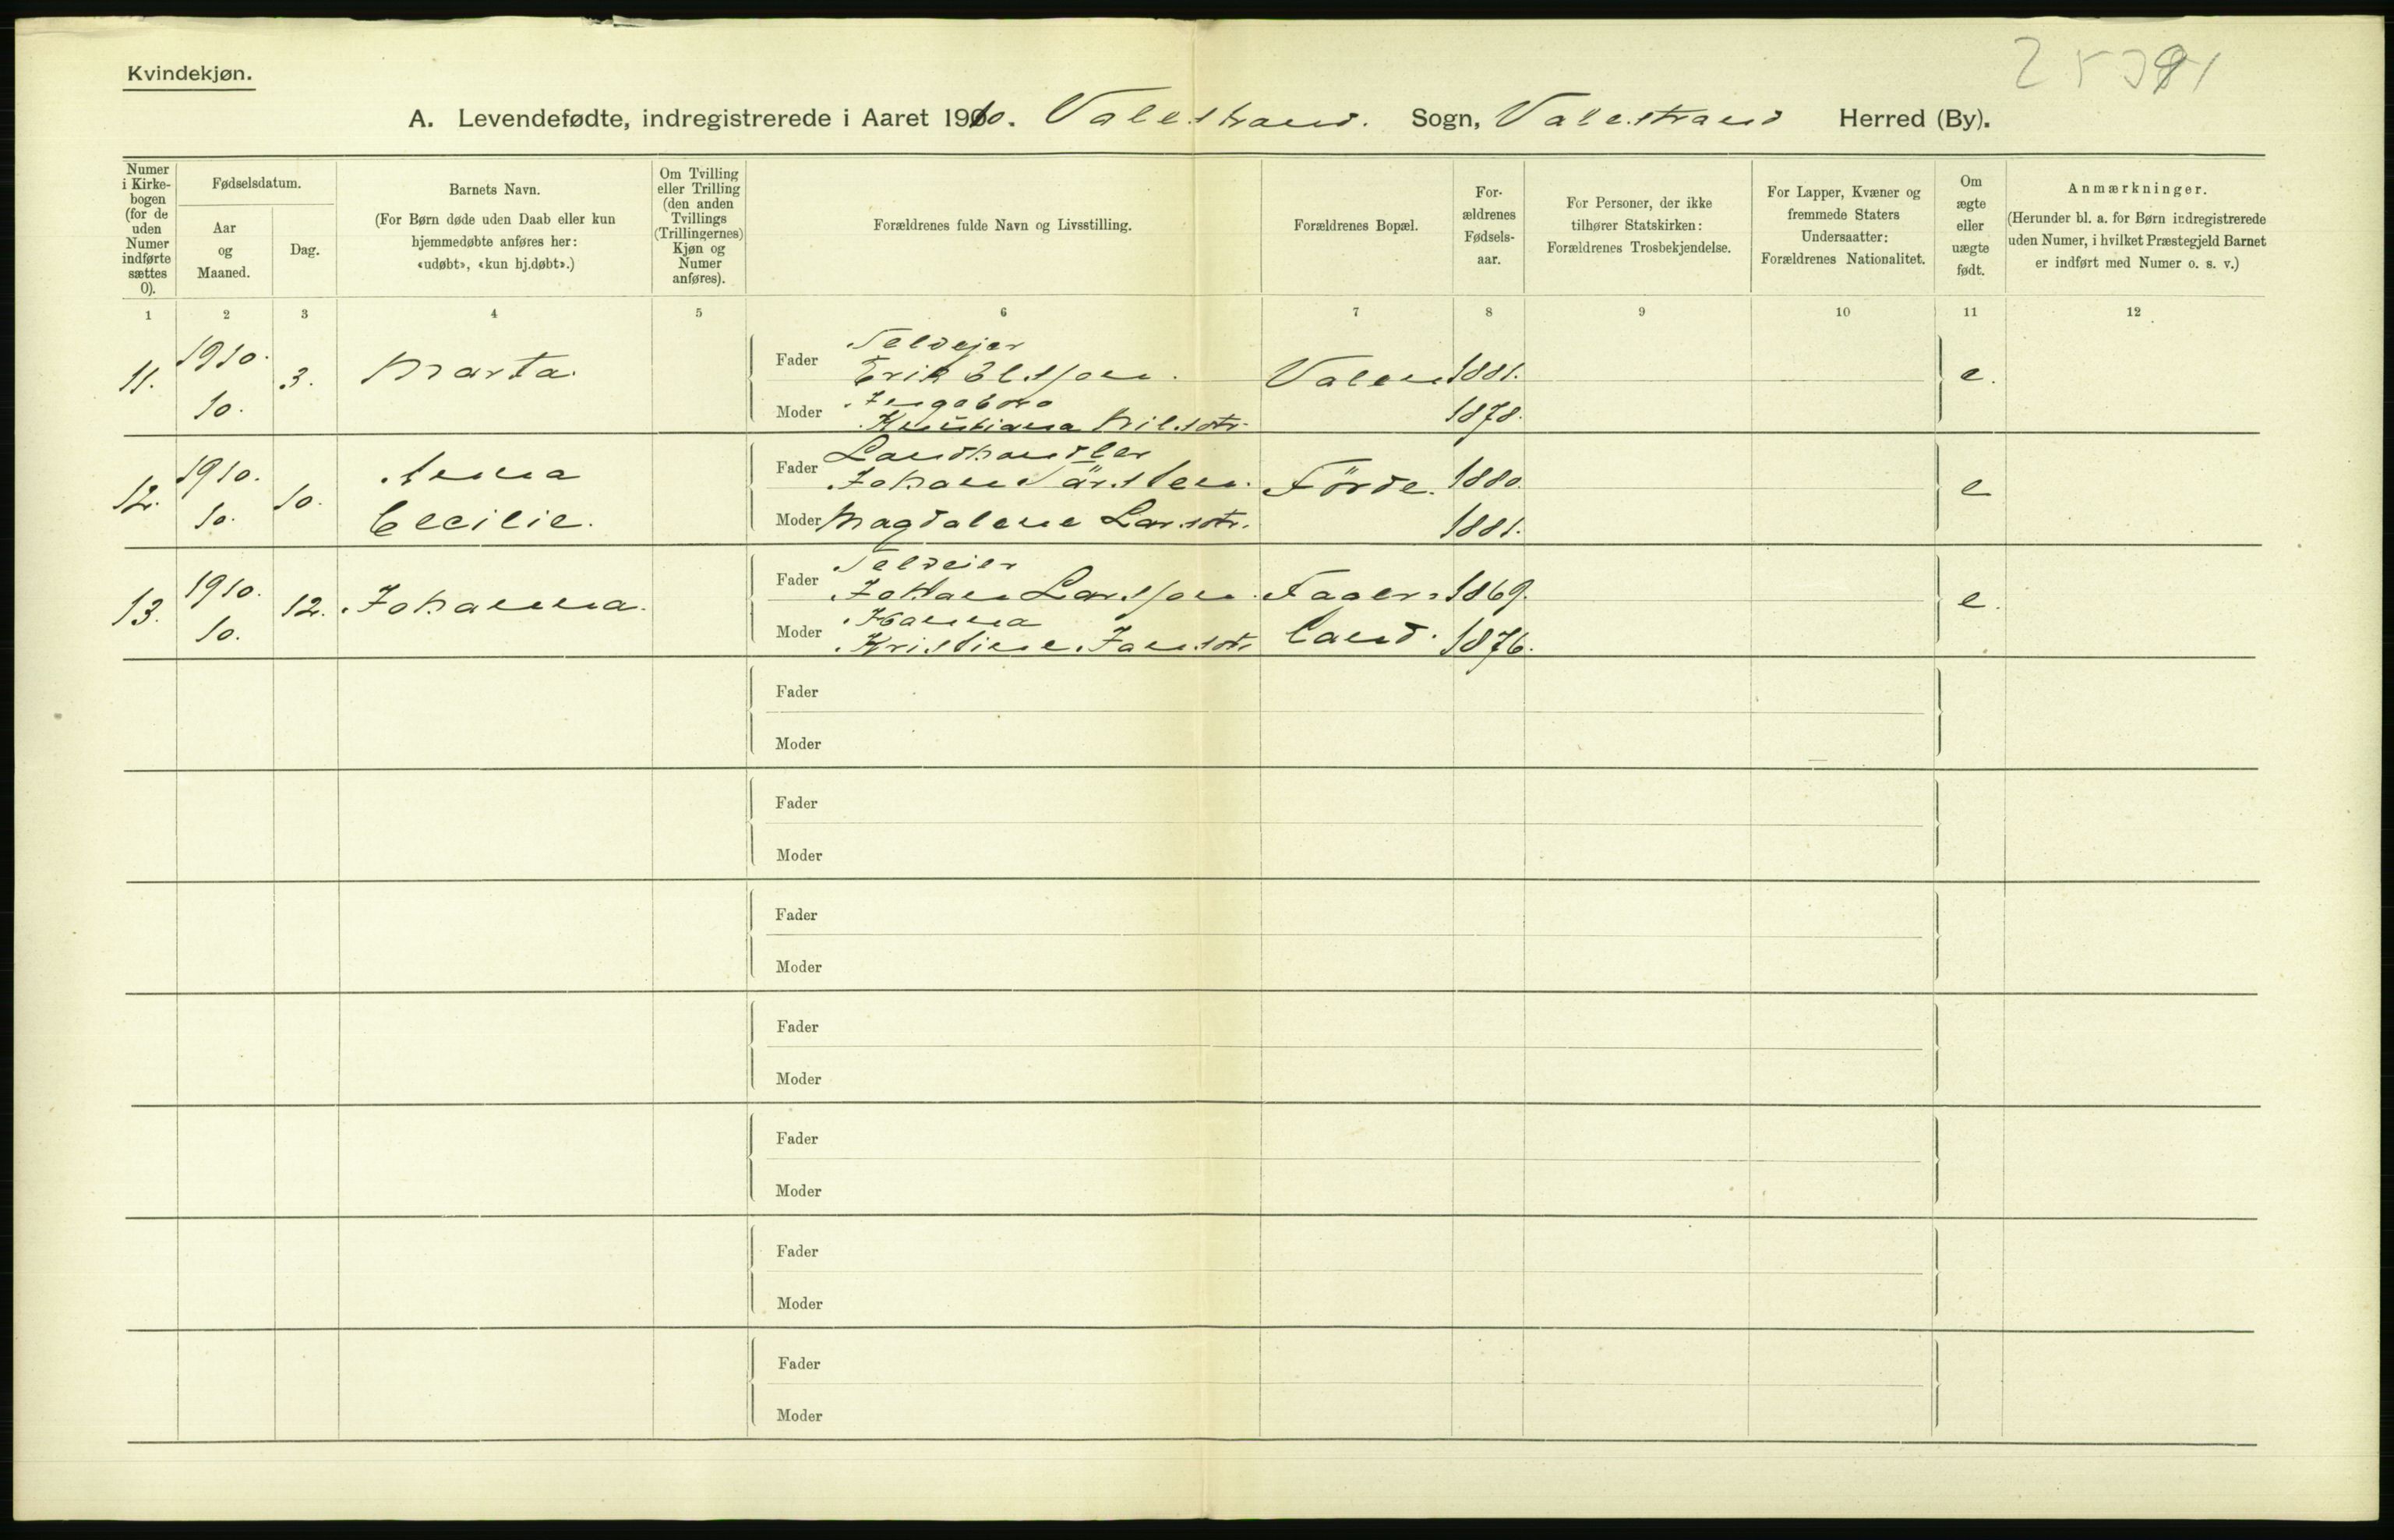 Kvindekjøn.
25391
A. Levendefødte, indregistrerede i Aaret 1910. Valestrand. Sogn, Valestrand Herred (By).
Numer i Kirkebogen (for de uden Numer indførte sættes 0).
Fødselsdatum.
Aar og Maaned.
Dag.
Barnets Navn.
(For Børn døde uden Daab eller kun hjemmedøbte anføres her: «udøbt», «kun hj.døbt».)
Om Tvilling eller Trilling (den anden Tvillings (Trillingernes) Kjøn og Numer anføres).
Forældrenes fulde Navn og Livsstilling.
Forældrenes Bopæl.
Forældrenes Fødselsaar.
For Personer, der ikke tilhører Statskirken: Forældrenes Trosbekjendelse.
For Lapper, Kvæner og fremmede Staters Undersaatter: Forældrenes Nationalitet.
Om ægte eller uægte født.
Anmærkninger.
(Herunder bl. a. for Børn indregistrerede uden Numer, i hvilket Præstegjeld Barnet er indført med Numer o. s. v.)
1 2 3 4 5 6 7 8 9 10 11 12
11. 1910. 10. 3. Marta.
Fader Selvejer Erik Elssen. Valen 1881. e.
Moder Ingeborg Kristiana Nilsdtr. 1878.
12. 1910. 10. 10. Anna Cecilie.
Fader Landhandler Johan Førde. 1880. e
Moder Magdalene Larsdtr. 1881.
13. 1910. 10. 12. Johanna.
Fader Selveier Johan Larssen. Fager= 1869. e.
Moder Hanna Kristine Jansdtr. land. 1876.
Fader
Moder
Fader
Moder
Fader
Moder
Fader
Moder
Fader
Moder
Fader
Moder
Fader
Moder